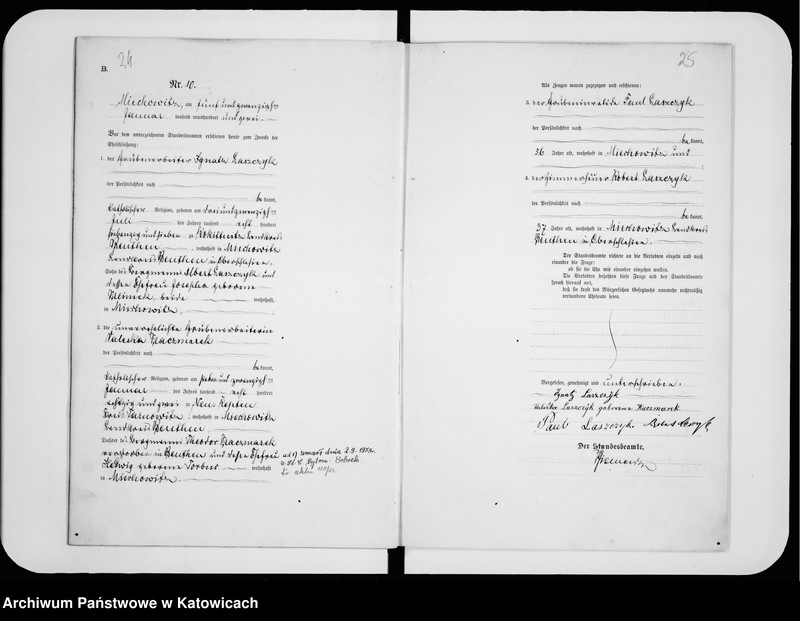 24
B.
Nr. 10.
Miechowitz, am fünf und zwanzigsten
Januar tausend neunhundert und zwei.
Vor dem unterzeichneten Standesbeamten erschienen heute zum Zwecke der
Eheschließung:
1. der Grubenarbeiter Ignatz Laszczyk
der Persönlichkeit nach
be kannt,
katholischer Religion, geboren am drei und zwanzigsten
Juli des Jahres tausend acht hundert
siebenzig und sieben zu Rokittnitz Landkreis
Beuthen, wohnhaft in Miechowitz
Landkreis Beuthen in Oberschlesien,
Sohn des Bergmanns Albert Laszczyk und
dessen Ehefrau Josepha geborene
beide wohnhaft
in Miechowitz.
2. die unverehelichte Grubenarbeiterin
Valeska Kaczmarek
der Persönlichkeit nach
be kannt,
katholischer Religion, geboren am sieben und zwanzigsten
Januar des Jahres tausend acht hundert
achtzig und zwei zu Neu Repten
Kreis Tarnowitz, wohnhaft in Miechowitz
Landkreis Beuthen,
Tochter des Bergmanns Theodor Kaczmarek
verstorben in Beuthen und dessen Ehefrau
Hedwig geborene wohnhaft
in Miechowitz.
ad 1) zmarł dnia 2.9.1953r.
Bytom Bobrek
25
Als Zeugen waren zugezogen und erschienen:
3. der Grubeninvalide Paul Laszczyk
der Persönlichkeit nach
be kannt,
56 Jahre alt, wohnhaft in Miechowitz und
4. der Zimmerhäuer Robert Laszczyk
der Persönlichkeit nach
be kannt,
37 Jahre alt, wohnhaft in Miechowitz Landkreis
Beuthen in Oberschlesien.
Der Standesbeamte richtete an die Verlobten einzeln und nach
einander die Frage:
ob sie die Ehe mit einander eingehen wollen.
Die Verlobten bejahten diese Frage und der Standesbeamte
sprach hierauf aus,
daß sie kraft des Bürgerlichen Gesetzbuchs nunmehr rechtmäßig
verbundene Eheleute seien.
Vorgelesen, genehmigt und unterschrieben.
Ignatz Laszczyk
Valeska Laszczyk geborene Kaczmarek
Paul Laszczyk
Der Standesbeamte.
Archiwum Państwowe w Katowicach